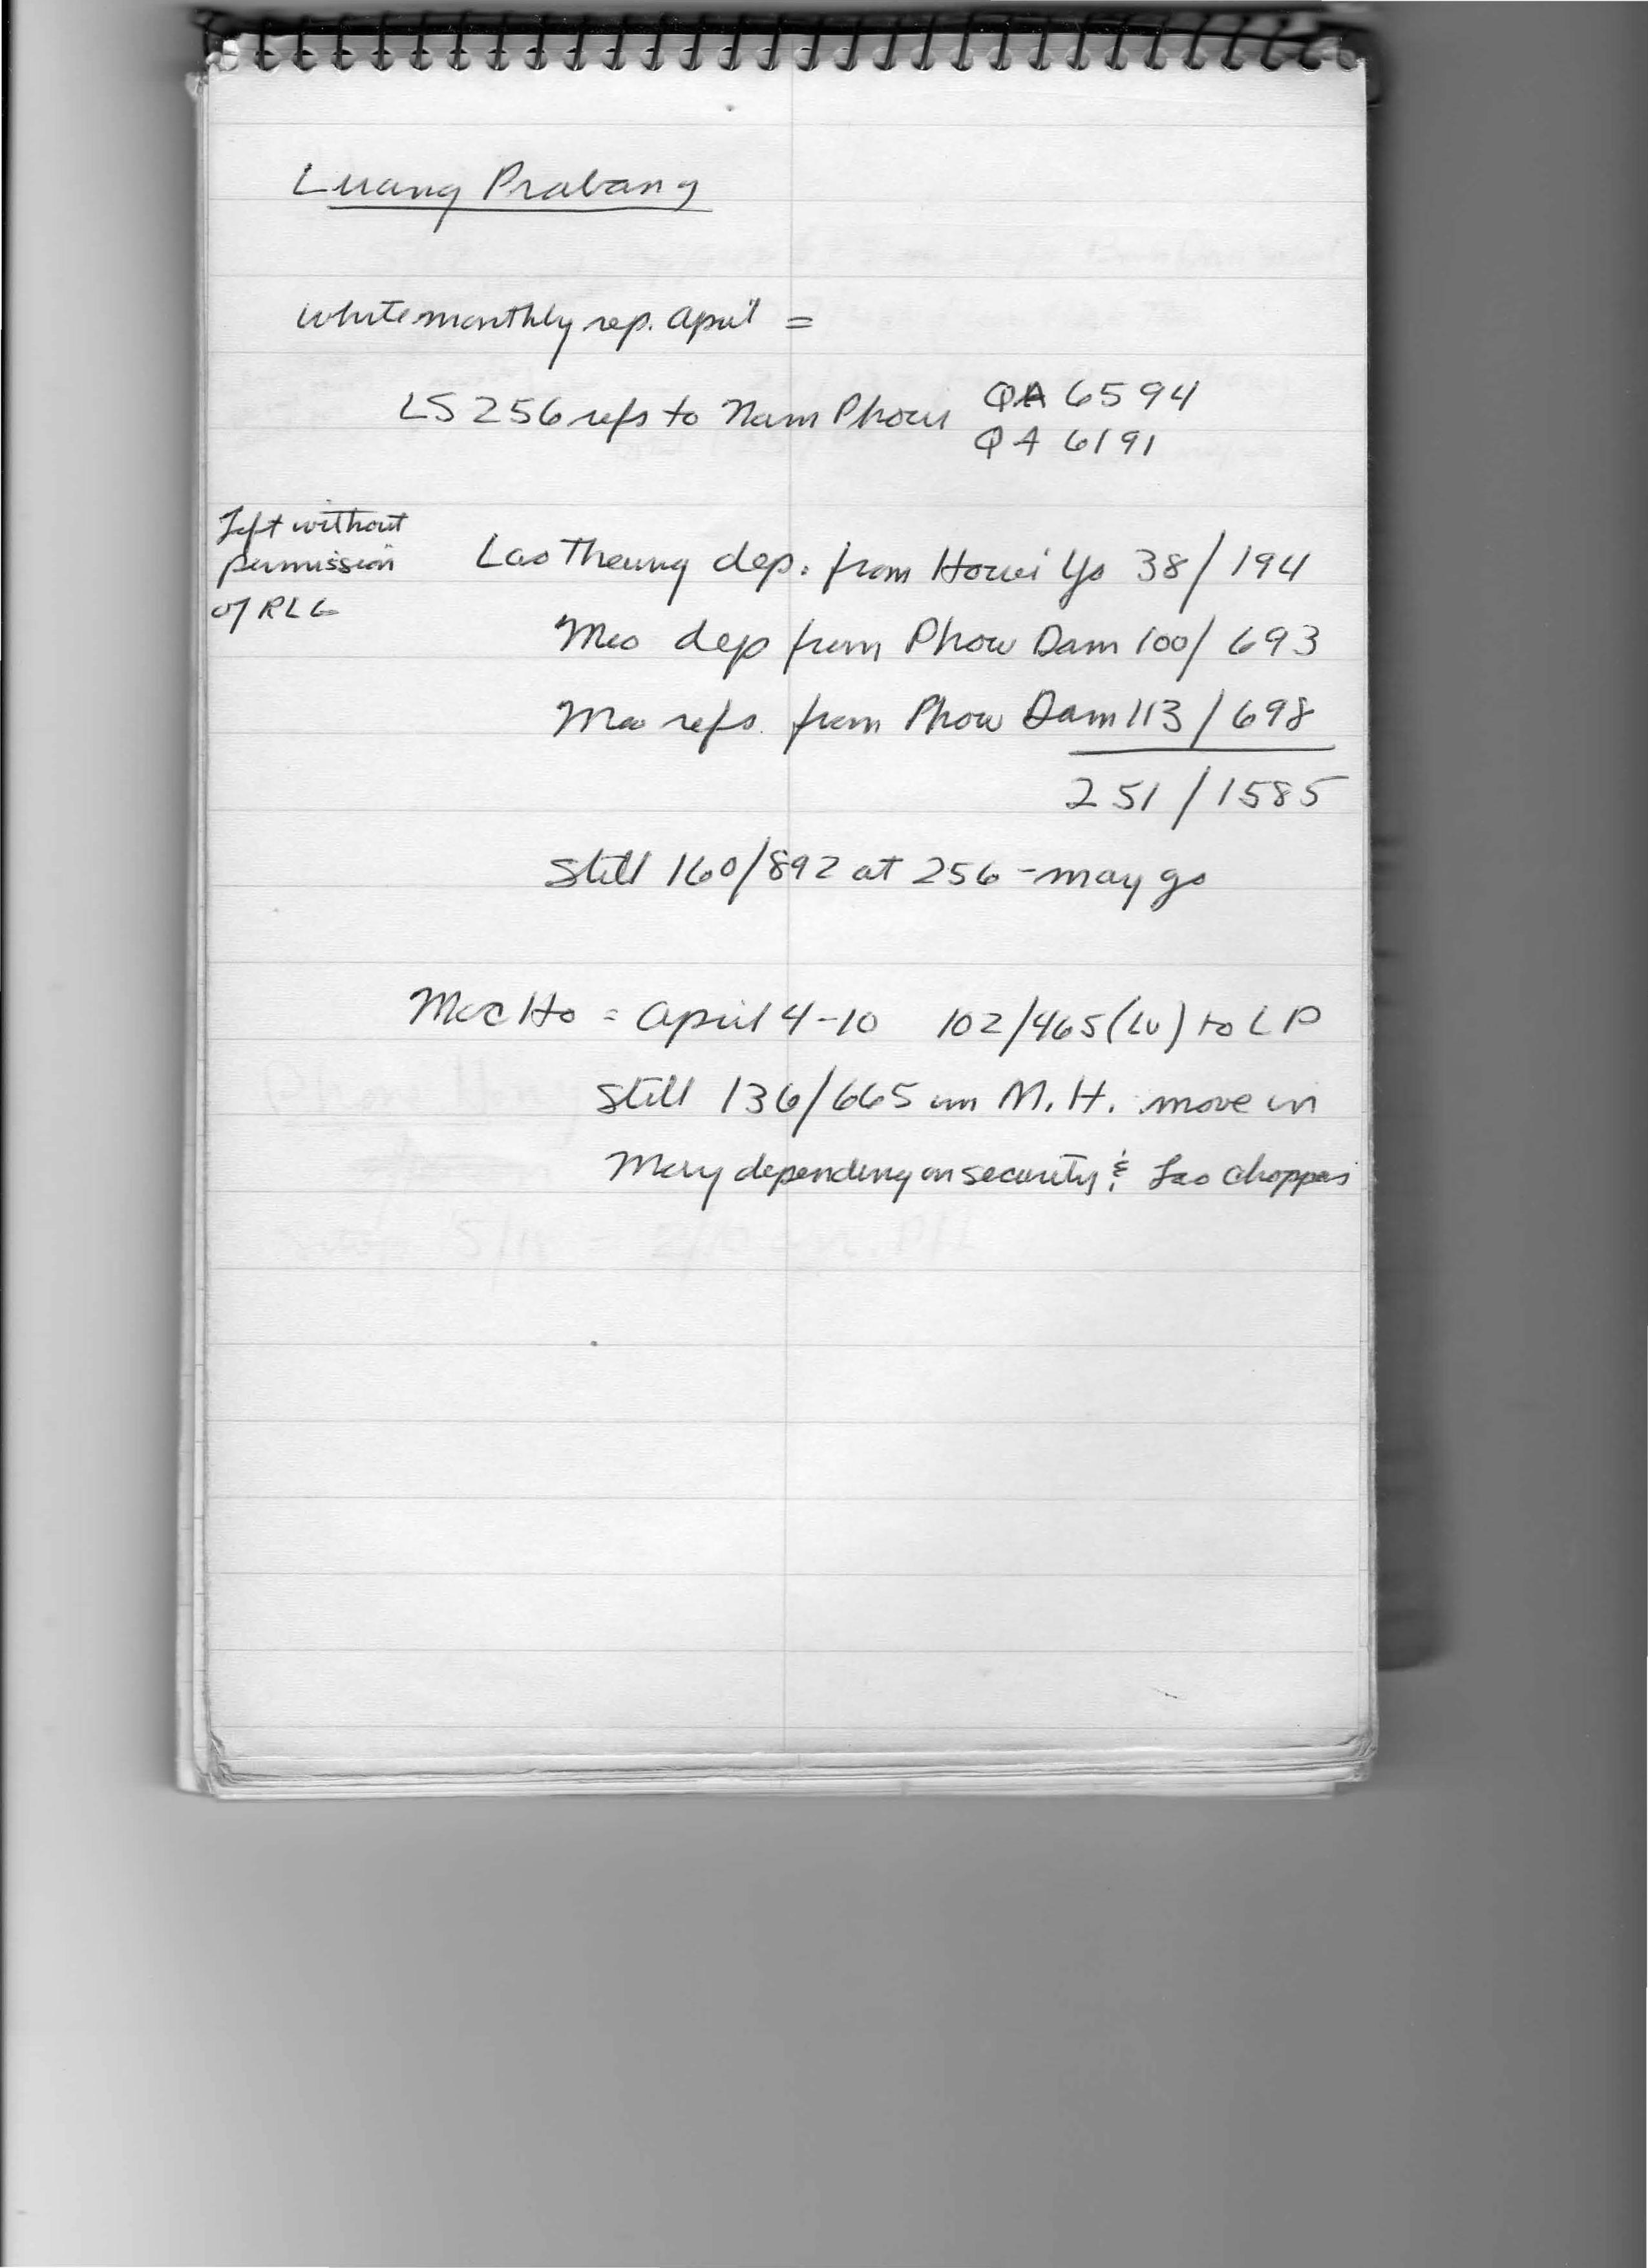 Luang Prabang
White monthly rep. April =
LS 256 refs to Nam Phoui QA 6594
QA 6191
Left without
permission
of RLG
Lao Theung dep. from Houei Yo 38/194
Meo dep from Phou Dam 100/693
Meo refs. from Phou Dam 113/698
251/1585
Still 160/892 at 256 - may go
Moc Ho = April 4-10 102/465 (Lu) to LP
Still 136/665 in M.H. move in
May depending on security & Lao choppers